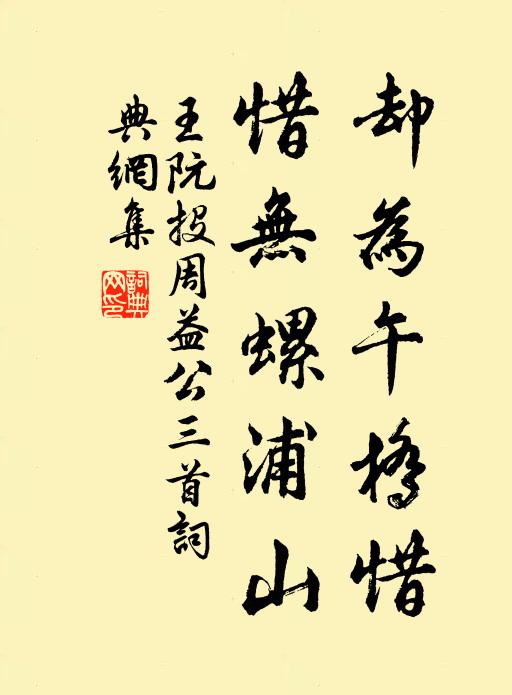 却為午橋惜
惜無螺浦山
王阮投周益公三首詞
典網集
詞典網印